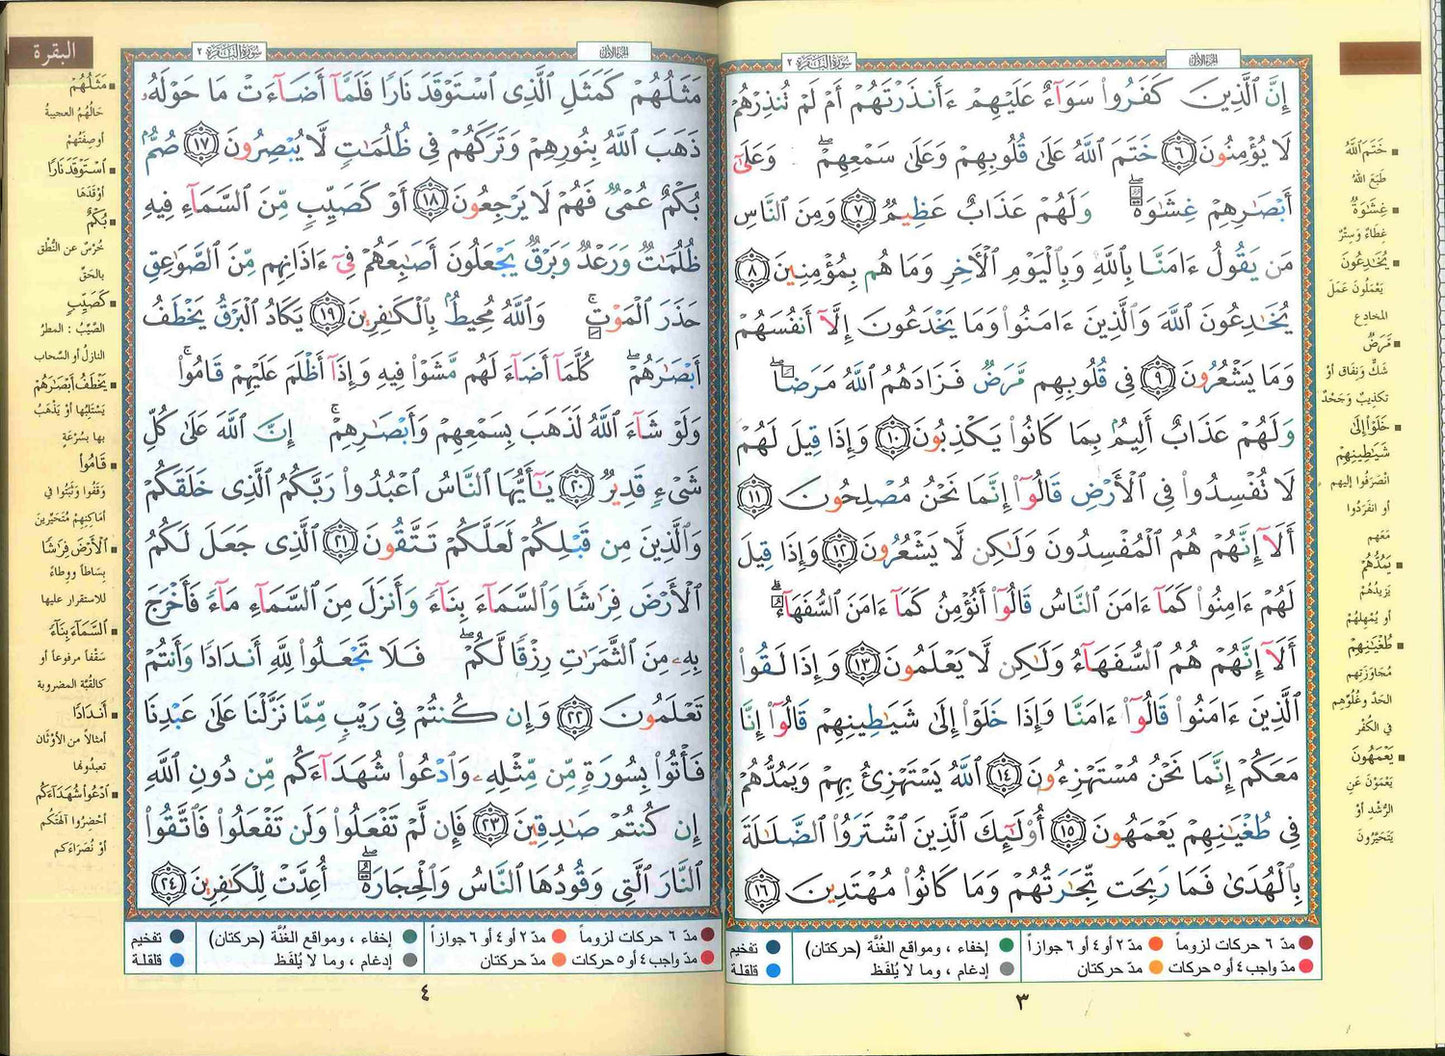 الجزء الأول
سورة البقرة ٢
إِنَّ ٱلَّذِينَ كَفَرُوا۟ سَوَآءٌ عَلَيْهِمْ ءَأَنذَرْتَهُمْ أَمْ لَمْ تُنذِرْهُمْ
لَا يُؤْمِنُونَ ٦ خَتَمَ ٱللَّهُ عَلَىٰ قُلُوبِهِمْ وَعَلَىٰ سَمْعِهِمْ ۖ وَعَلَىٰٓ
أَبْصَـٰرِهِمْ غِشَـٰوَةٌ ۖ وَلَهُمْ عَذَابٌ عَظِيمٌ ٧ وَمِنَ ٱلنَّاسِ
مَن يَقُولُ ءَامَنَّا بِٱللَّهِ وَبِٱلْيَوْمِ ٱلْأَخِرِ وَمَا هُم بِمُؤْمِنِينَ ٨
يُخَـٰدِعُونَ ٱللَّهَ وَٱلَّذِينَ ءَامَنُوا۟ وَمَا يَخْدَعُونَ إِلَّآ أَنفُسَهُمْ
وَمَا يَشْعُرُونَ ٩ فِى قُلُوبِهِم مَّرَضٌ فَزَادَهُمُ ٱللَّهُ مَرَضًا ۖ
وَلَهُمْ عَذَابٌ أَلِيمٌۢ بِمَا كَانُوا۟ يَكْذِبُونَ ١٠ وَإِذَا قِيلَ لَهُمْ
لَا تُفْسِدُوا۟ فِى ٱلْأَرْضِ قَالُوٓا۟ إِنَّمَا نَحْنُ مُصْلِحُونَ ١١
أَلَآ إِنَّهُمْ هُمُ ٱلْمُفْسِدُونَ وَلَـٰكِن لَّا يَشْعُرُونَ ١٢ وَإِذَا قِيلَ
لَهُمْ ءَامِنُوا۟ كَمَآ ءَامَنَ ٱلنَّاسُ قَالُوٓا۟ أَنُؤْمِنُ كَمَآ ءَامَنَ ٱلسُّفَهَآءُ ۗ
أَلَآ إِنَّهُمْ هُمُ ٱلسُّفَهَآءُ وَلَـٰكِن لَّا يَعْلَمُونَ ١٣ وَإِذَا لَقُوا۟
ٱلَّذِينَ ءَامَنُوا۟ قَالُوٓا۟ ءَامَنَّا وَإِذَا خَلَوْا۟ إِلَىٰ شَيَـٰطِينِهِمْ قَالُوٓا۟ إِنَّا
مَعَكُمْ إِنَّمَا نَحْنُ مُسْتَهْزِءُونَ ١٤ ٱللَّهُ يَسْتَهْزِئُ بِهِمْ وَيَمُدُّهُمْ
فِى طُغْيَـٰنِهِمْ يَعْمَهُونَ ١٥ أُو۟لَـٰٓئِكَ ٱلَّذِينَ ٱشْتَرَوُا۟ ٱلضَّلَـٰلَةَ
بِٱلْهُدَىٰ فَمَا رَبِحَت تِّجَـٰرَتُهُمْ وَمَا كَانُوا۟ مُهْتَدِينَ ١٦
خَتَمَ ٱللَّهُ
طَبَعَ اللهُ
غِشَـٰوَةٌ
غِطَاءٌ وَسِتْرٌ
يُخَـٰدِعُونَ
يَعْمَلُونَ عَمَلَ
المخادِع
مَرَضٌ
شَكٌّ وَنِفَاق أوْ
تكذِيبٌ وَجَحْدٌ
خَلَوْا۟ إِلَىٰ
شَيَـٰطِينِهِمْ
انْصَرَفُوا إليهم
أو انفَرَدُوا
مَعَهم
يَمُدُّهُمْ
يَزِيدُهُمْ
أو يُمْهِلُهُمْ
طُغْيَـٰنِهِمْ
مُجَاوَزَتِهم
الحَدّ وغُلُوِّهِم
في الكُفْرِ
يَعْمَهُونَ
يَعْمَوْنَ عَنِ
الرُّشْدِ أوْ
يَتَحَيَّرُونَ
مدّ ٦ حركات لزوماً مدّ ٢ أو ٤ أو ٦ جوازاً إخفاء ، ومواقع الغُنَّة (حركتان) تفخيم
مدّ واجب ٤ أو ٥ حركات مدّ حركتان إدغام ، وما لا يُلفَظ قلقلة
٣
الجزء الأول
سورة البقرة ٢
البقرة
مَثَلُهُمْ كَمَثَلِ ٱلَّذِى ٱسْتَوْقَدَ نَارًا فَلَمَّآ أَضَآءَتْ مَا حَوْلَهُۥ
ذَهَبَ ٱللَّهُ بِنُورِهِمْ وَتَرَكَهُمْ فِى ظُلُمَـٰتٍ لَّا يُبْصِرُونَ ١٧ صُمٌّۢ
بُكْمٌ عُمْىٌ فَهُمْ لَا يَرْجِعُونَ ١٨ أَوْ كَصَيِّبٍ مِّنَ ٱلسَّمَآءِ فِيهِ
ظُلُمَـٰتٌ وَرَعْدٌ وَبَرْقٌ يَجْعَلُونَ أَصَـٰبِعَهُمْ فِىٓ ءَاذَانِهِم مِّنَ ٱلصَّوَٰعِقِ
حَذَرَ ٱلْمَوْتِ ۚ وَٱللَّهُ مُحِيطٌۢ بِٱلْكَـٰفِرِينَ ١٩ يَكَادُ ٱلْبَرْقُ يَخْطَفُ
أَبْصَـٰرَهُمْ ۖ كُلَّمَآ أَضَآءَ لَهُم مَّشَوْا۟ فِيهِ وَإِذَآ أَظْلَمَ عَلَيْهِمْ قَامُوا۟ ۚ
وَلَوْ شَآءَ ٱللَّهُ لَذَهَبَ بِسَمْعِهِمْ وَأَبْصَـٰرِهِمْ ۚ إِنَّ ٱللَّهَ عَلَىٰ كُلِّ
شَىْءٍ قَدِيرٌ ٢٠ يَـٰٓأَيُّهَا ٱلنَّاسُ ٱعْبُدُوا۟ رَبَّكُمُ ٱلَّذِى خَلَقَكُمْ
وَٱلَّذِينَ مِن قَبْلِكُمْ لَعَلَّكُمْ تَتَّقُونَ ٢١ ٱلَّذِى جَعَلَ لَكُمُ
ٱلْأَرْضَ فِرَٰشًا وَٱلسَّمَآءَ بِنَآءً وَأَنزَلَ مِنَ ٱلسَّمَآءِ مَآءً فَأَخْرَجَ
بِهِۦ مِنَ ٱلثَّمَرَٰتِ رِزْقًا لَّكُمْ ۖ فَلَا تَجْعَلُوا۟ لِلَّهِ أَندَادًا وَأَنتُمْ
تَعْلَمُونَ ٢٢ وَإِن كُنتُمْ فِى رَيْبٍ مِّمَّا نَزَّلْنَا عَلَىٰ عَبْدِنَا
فَأْتُوا۟ بِسُورَةٍ مِّن مِّثْلِهِۦ وَٱدْعُوا۟ شُهَدَآءَكُم مِّن دُونِ ٱللَّهِ
إِن كُنتُمْ صَـٰدِقِينَ ٢٣ فَإِن لَّمْ تَفْعَلُوا۟ وَلَن تَفْعَلُوا۟ فَٱتَّقُوا۟
ٱلنَّارَ ٱلَّتِى وَقُودُهَا ٱلنَّاسُ وَٱلْحِجَارَةُ ۖ أُعِدَّتْ لِلْكَـٰفِرِينَ ٢٤
مَثَلُهُمْ
حَالُهُمُ العجيبةُ
أوصِفَتُهمْ
ٱسْتَوْقَدَ نَارًا
أوْقَدَهَا
بُكْمٌ
خُرْسٌ عن النُّطْقِ
بالحَقّ
كَصَيِّبٍ
الصَّيِّبُ : المطرُ
النازلُ أو السَّحاب
يَخْطَفُ أَبْصَـٰرَهُمْ
يَسْتَلِبُها أوْ يَذْهَبُ
بها بسُرْعَةٍ
قَامُوا۟
وَقَفُوا وَثَبَتُوا في
أمَاكِنِهِمْ مُتَحَيِّرينَ
ٱلْأَرْضَ فِرَٰشًا
بِسَاطاً ووِطَاءً
للاستقرار عليها
ٱلسَّمَآءَ بِنَآءً
سَقْفاً مرفوعاً أو
كالقُبَّة المضروبة
أَندَادًا
أمثالاً من الأوْثَان
تعبدُونَها
ٱدْعُوا۟ شُهَدَآءَكُم
أحْضِرُوا آلهَتَكُم
أوْ نُصَرَاءَكم
مدّ ٦ حركات لزوماً مدّ ٢ أو ٤ أو ٦ جوازاً إخفاء ، ومواقع الغُنَّة (حركتان) تفخيم
مدّ واجب ٤ أو ٥ حركات مدّ حركتان إدغام ، وما لا يُلفَظ قلقلة
٤